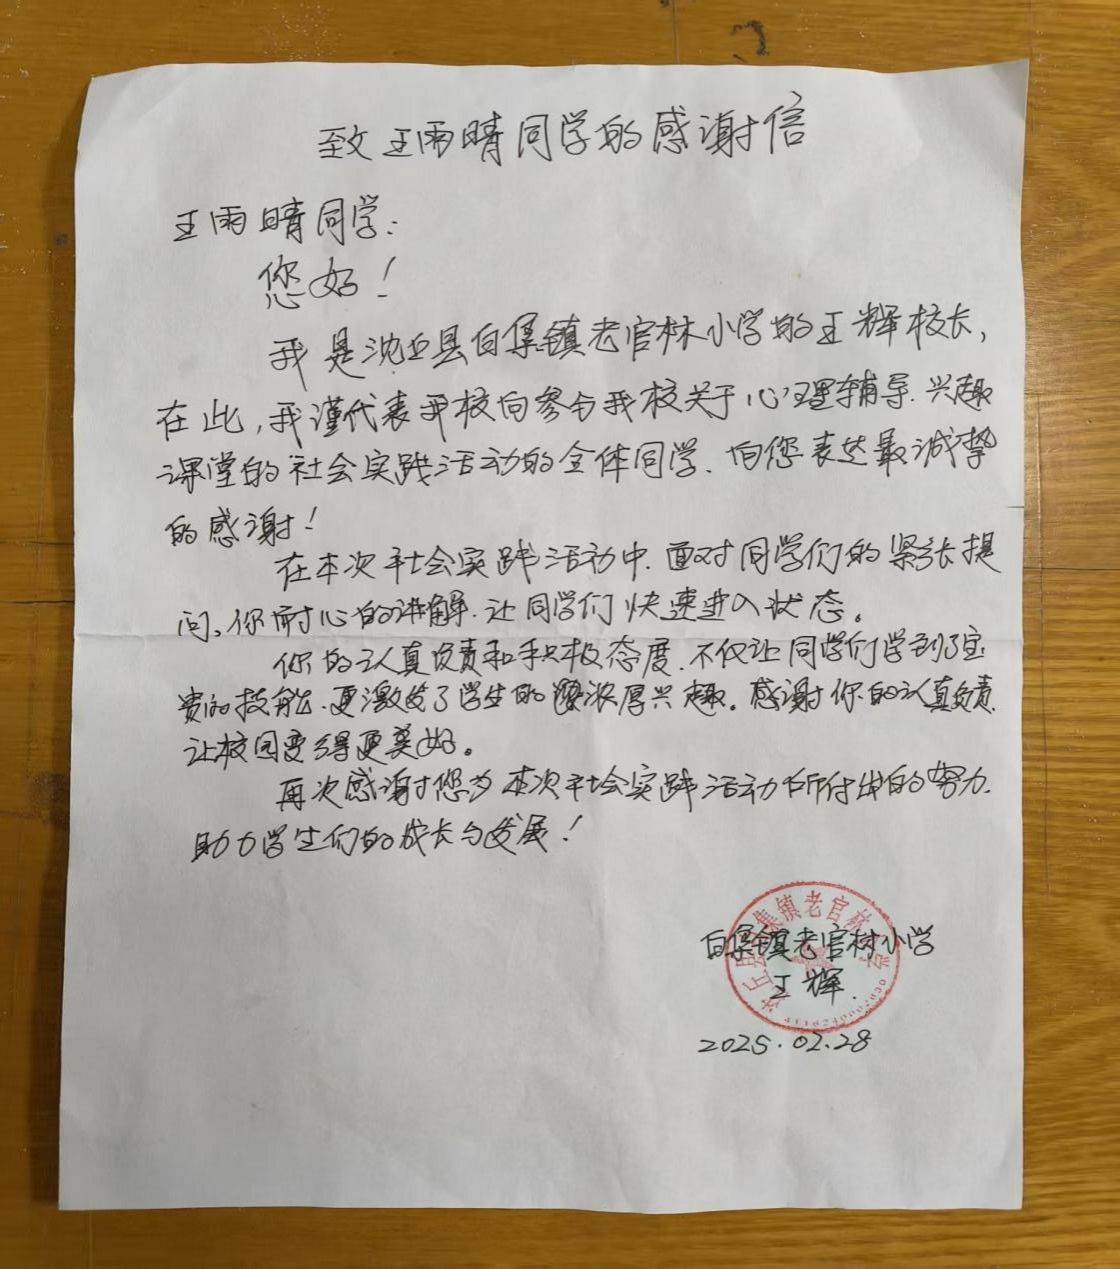 致王雨晴同学的感谢信
王雨晴同学:
您好!
我是沈丘县白集镇老官林小学的王辉校长,
在此,我谨代表我校向参与我校关于心理辅导.兴趣
课堂的社会实践活动的全体同学.向您表达最诚挚
的感谢!
在本次社会实践活动中.面对同学们的紧张提
问,你耐心的讲解.让同学们快速进入状态。
你的认真负责和积极态度.不仅让同学们学到了宝
贵的技能.更激发了学生的浓厚兴趣。感谢你的认真负责
让校园变得更美好。
再次感谢您为本次社会实践活动所付出的努力.
助力学生们的成长与发展!
白集镇老官林小学
王辉.
2025.02.28
沈丘县白集镇老官林小学